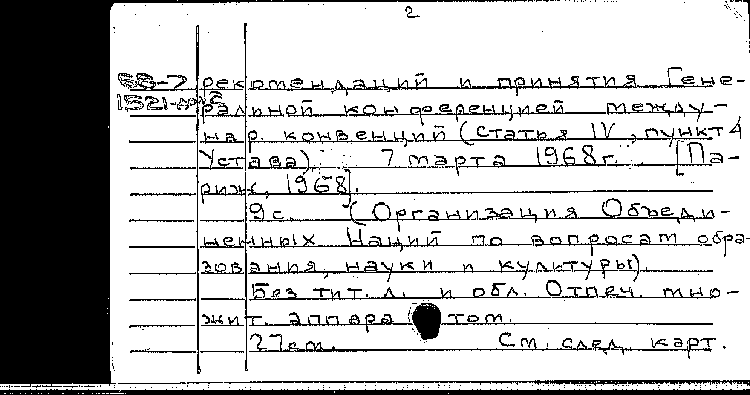 2
68-7 рекомендаций и принятия Гене-
1521 ральной конференцией между-
нар. конвенций (статья IV, пункт 4
Устава). 7 марта 1968г. [Па-
риж, 1968].
9с. (Организация Объеди-
ненных Наций по вопросам обра-
зования, науки и культуры).
Без тит. л. и обл. Отпеч. мно-
жит. аппаратом.
27см. См. след. карт.